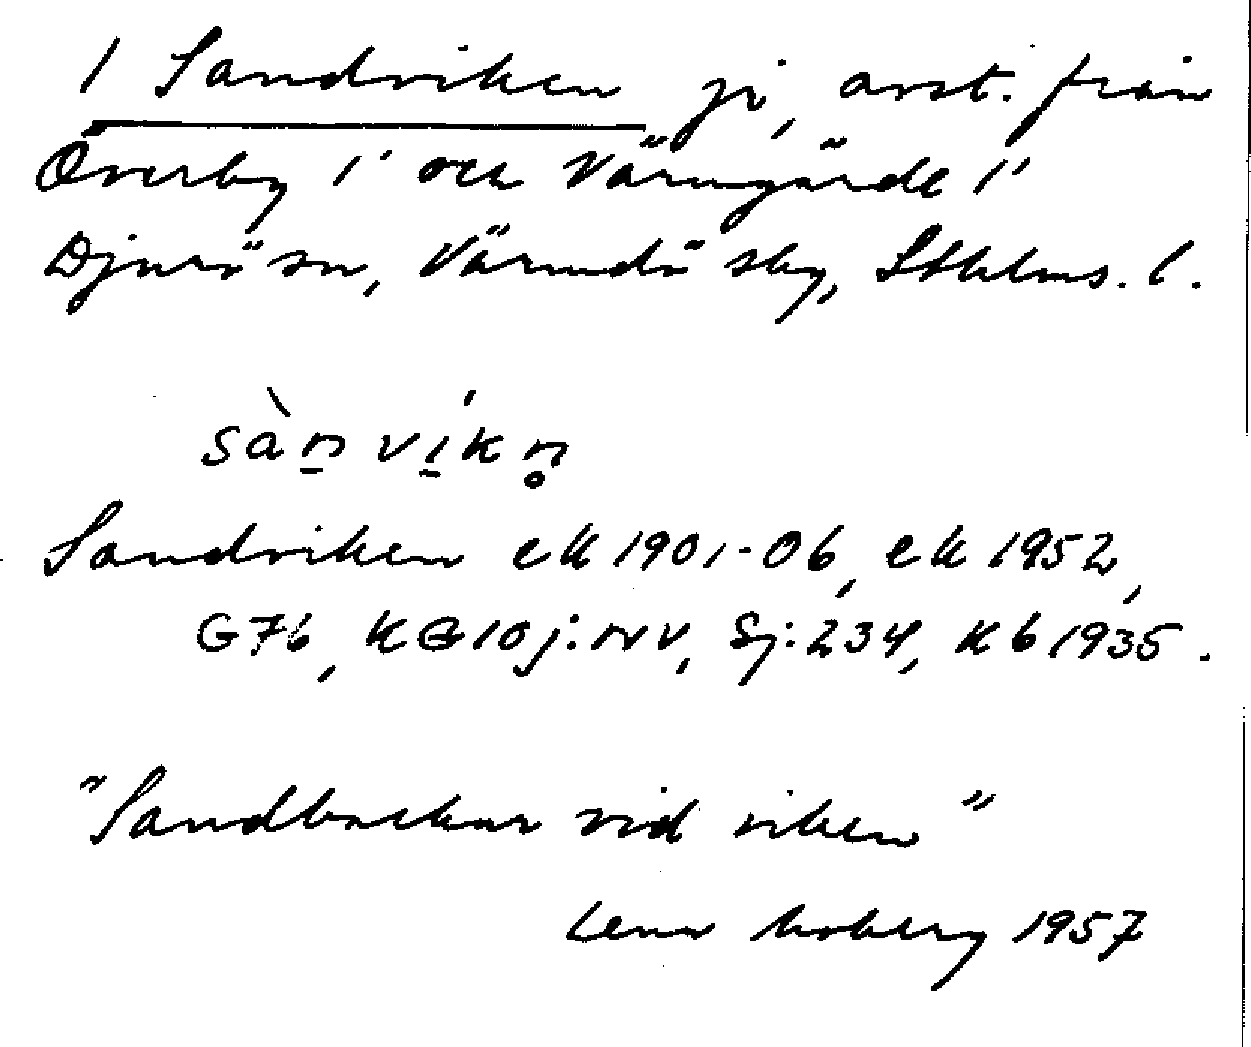 1 Sandviken jr, avst. från
Överby 1¹ och Värmgärde 1¹
Djurö sn, Värmdö skg, Sthlms. l.
sàn̠ ví̠kn̥
Sandviken ek 1901-06, ek 1952,
G76, KG 10j:NV, Sj:234, Kb 1935.
"Sandbackar vid viken"
Lena Moberg 1957